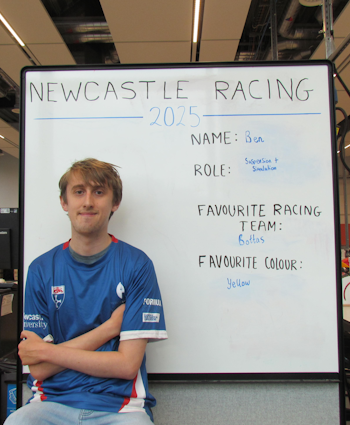 NEWCASTLE RACING
2025
NAME: Ben
ROLE: Suspension +
Simulation
FAVOURITE RACING
TEAM:
Bottas
FAVOURITE COLOUR:
Yellow
FORMULA